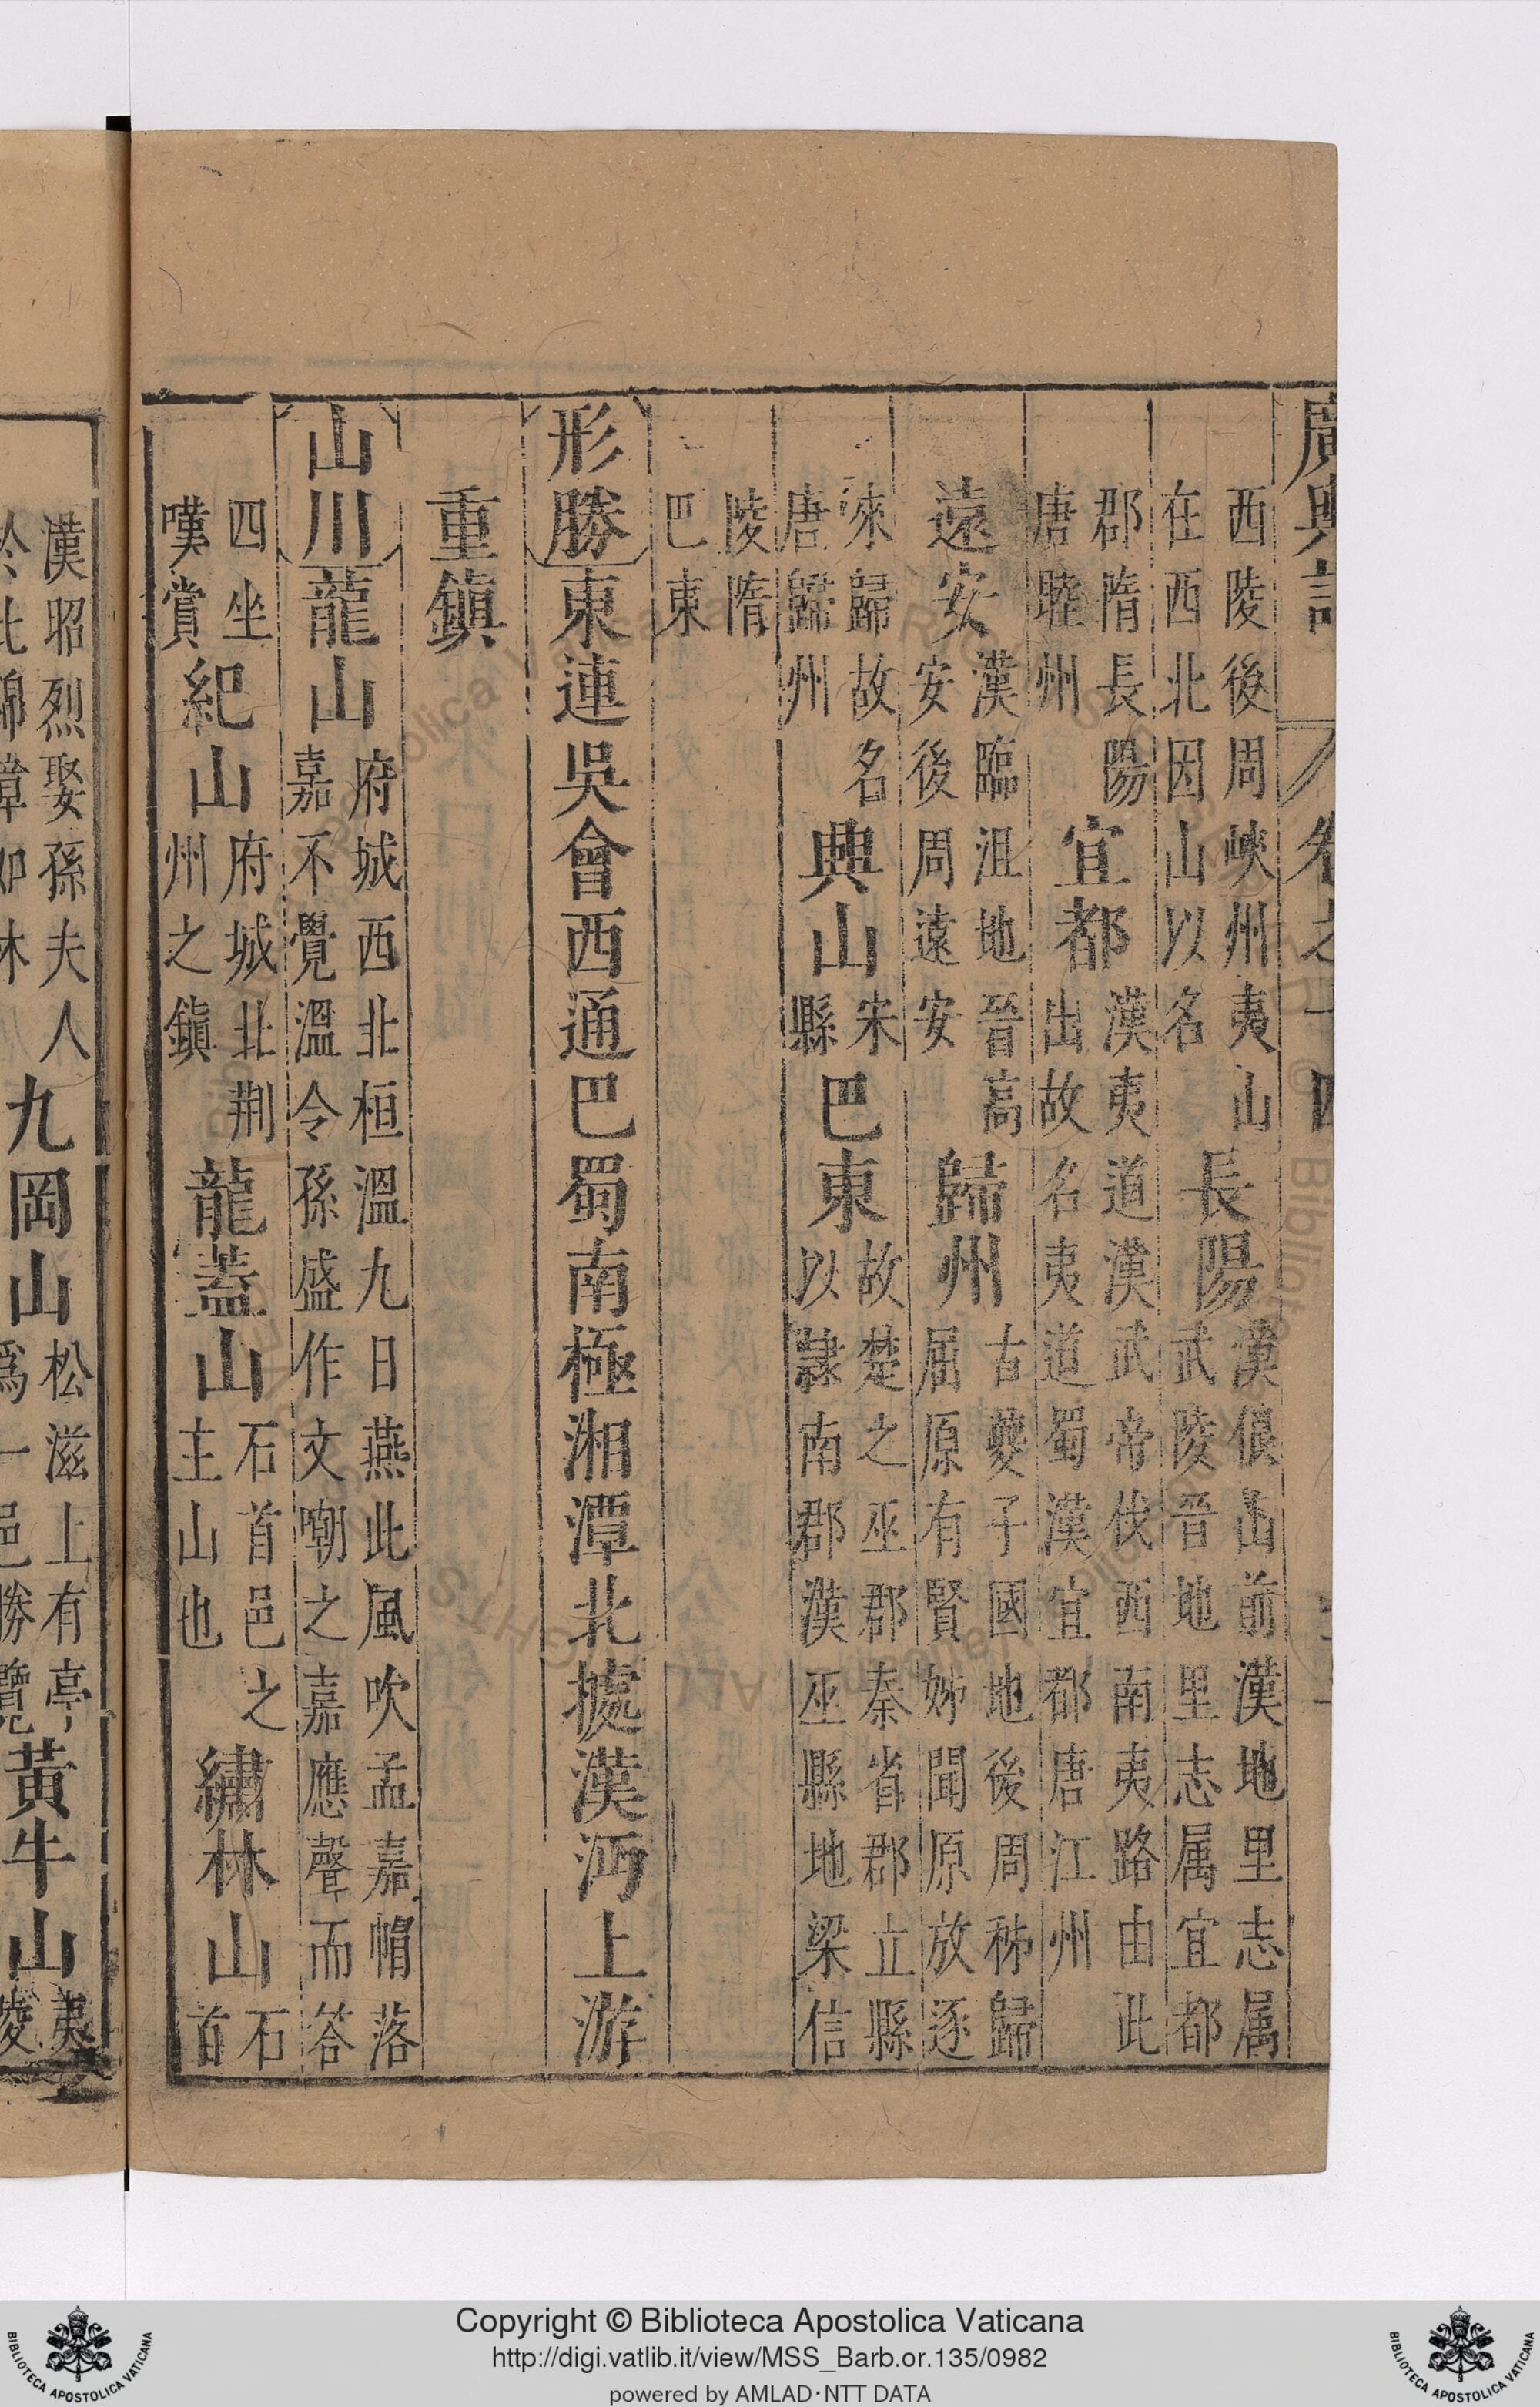 廣輿記 卷之十四
西陵後周峽州夷山
在西北因山以名
長陽
漢佷山前漢地里志属
武陵晉地里志属宜都
郡隋長陽
唐睦州
宜都
漢夷道漢武帝伐西南夷路由此
出故名夷道蜀漢宜都唐江州
遠安
漢臨沮地晉高
安後周遠安
歸州
古夔子國地後周秭歸
屈原有賢姊聞原放逐
來歸故名
唐歸州
興山
宋縣
巴東
故楚之巫郡秦省郡立縣
以隸南郡漢巫縣地梁信
陵隋
巴東
形勝東連吳會西通巴蜀南極湘潭北據漢沔上游
重鎮
山川龍山
府城西北桓溫九日燕此風吹孟嘉帽落
嘉不覺溫令孫盛作文嘲之嘉應聲而答
四坐
嘆賞
紀山
府城北荆
州之鎮
龍蓋山
石首邑之
主山也
繡林山
石
首
漢昭烈娶孫夫人
於此錦幛如林
九岡山
松滋上有亭
爲一邑勝覽
黃牛山
夷
陵
Copyright © Biblioteca Apostolica Vaticana
http://digi.vatlib.it/view/MSS_Barb.or.135/0982
powered by AMLAD·NTT DATA
BIBLIOTECA APOSTOLICA VATICANA
BIBLIOTECA APOSTOLICA VATICANA